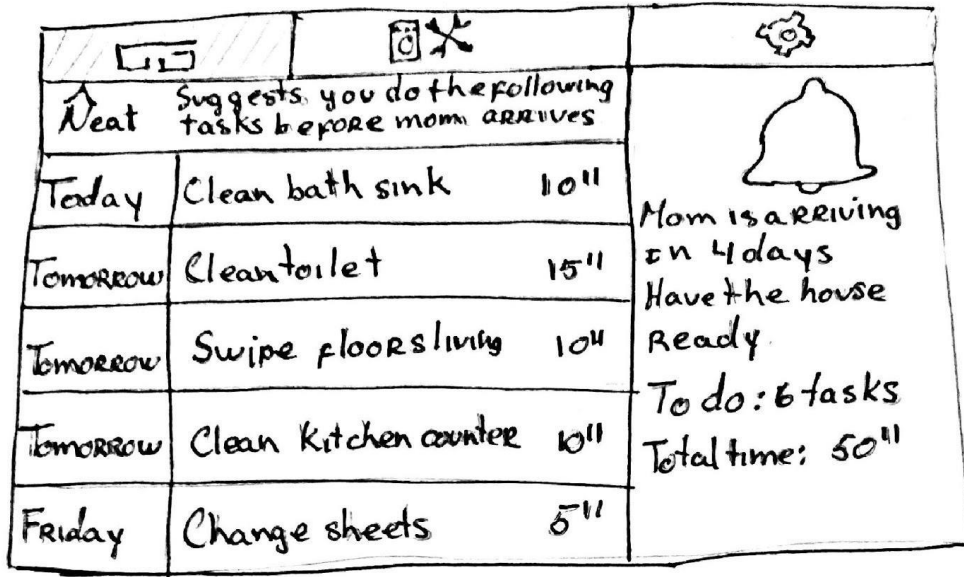 Neat
Suggests you do the following
tasks before mom arrives
Today Clean bath sink 10"
Tomorrow Clean toilet 15"
Tomorrow Swipe floors living 10"
Tomorrow Clean kitchen counter 10"
Friday Change sheets 5"
Mom is arriving
in 4 days
Have the house
Ready
To do: 6 tasks
Total time: 50"